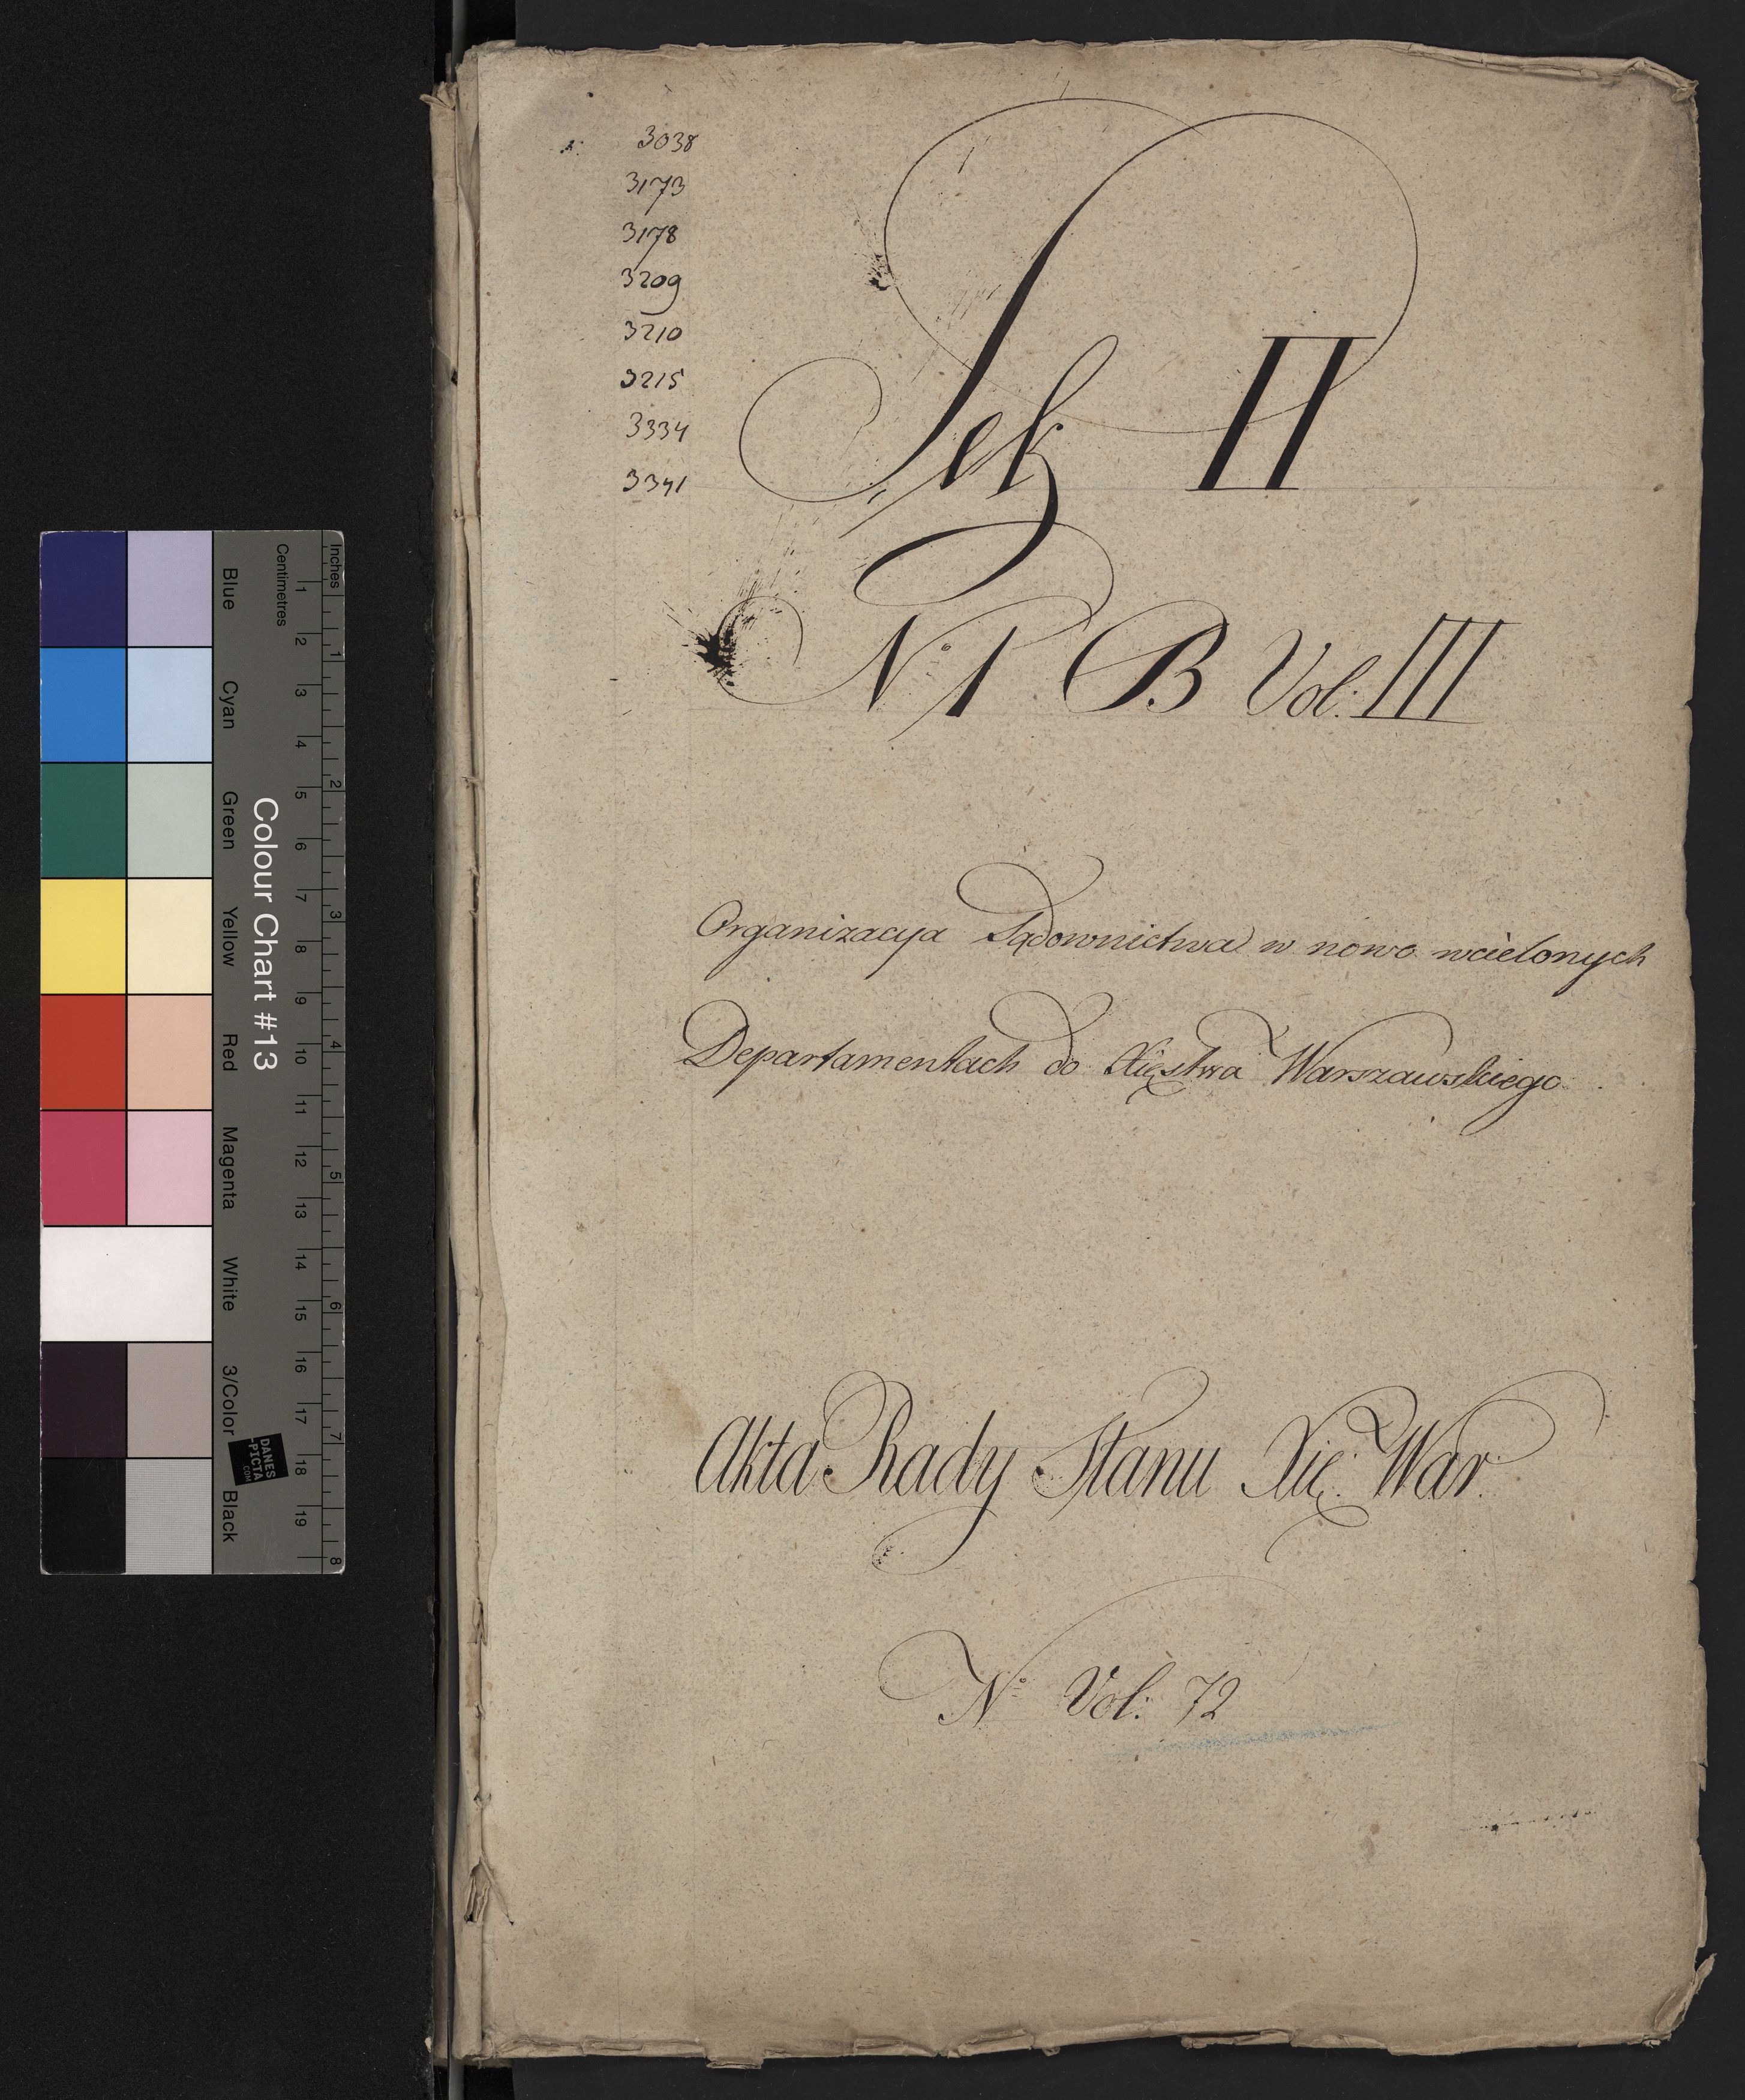 3038
3173
3178
3209
3210
3215
3334
3341
Sek II
No 1 B Vol: III
Organizacya Sądownictwa w nowo wcielonych
Departamentach do Xięstwa Warszawskiego
Akta Rady Stanu Xię: War:
No Vol: 72
Inches
Centimetres
1 2 3 4 5 6 7 8 9 10 11 12 13 14 15 16 17 18 19
1 2 3 4 5 6 7 8
Colour Chart #13
Blue
Cyan
Green
Yellow
Red
Magenta
White
3/Color
Black
DANES
-PICTA
.COM